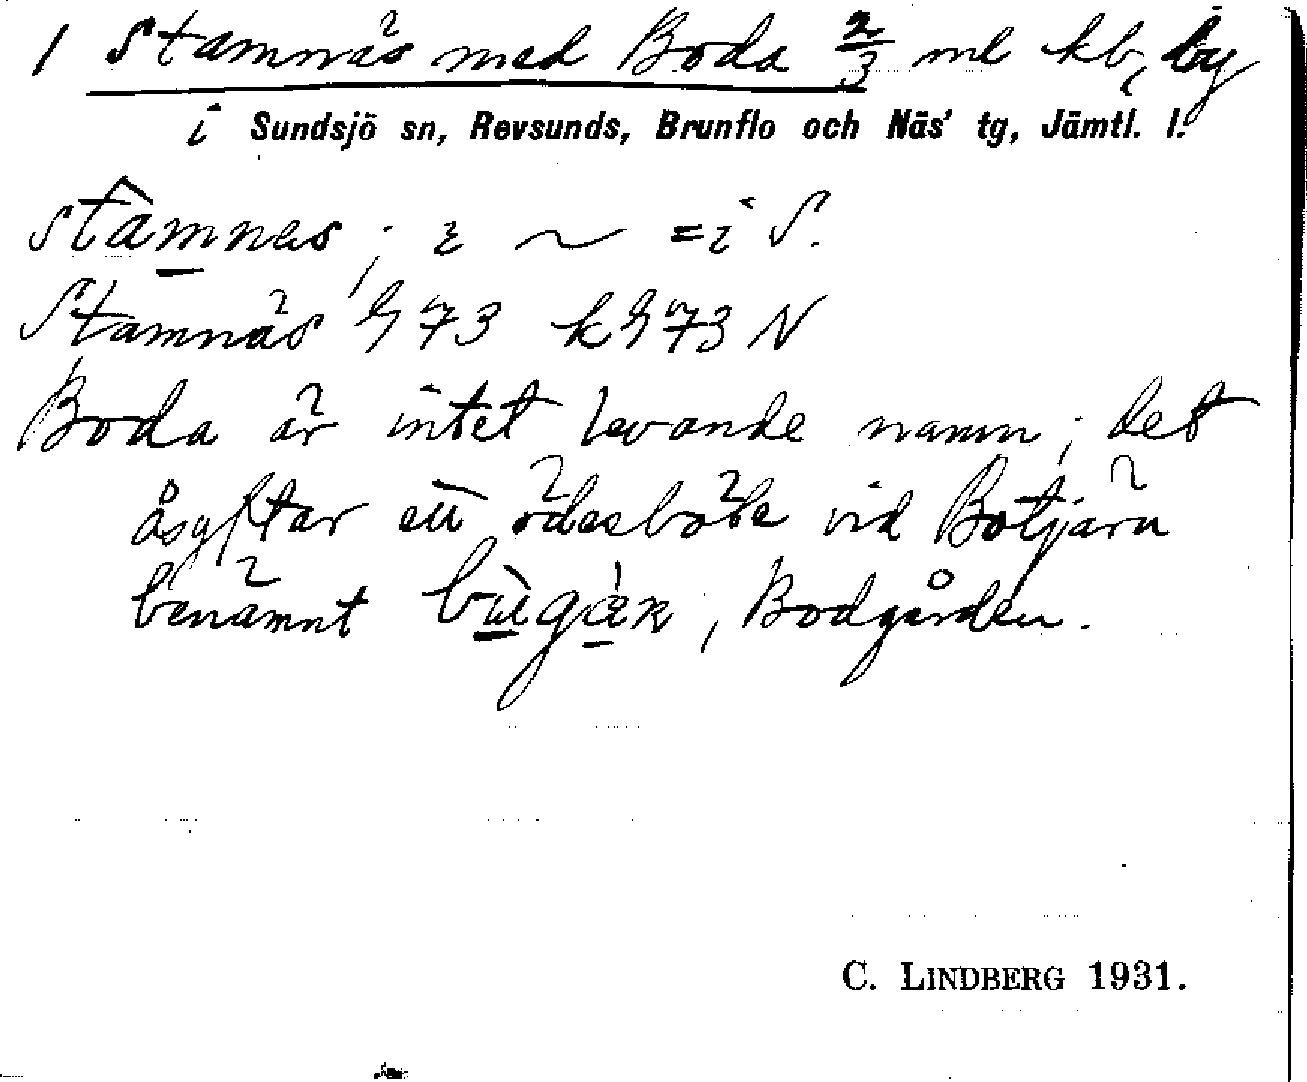 1 Stamnäs med Boda 2/3 ml kb, by
i Sundsjö sn, Revsunds, Brunflo och Näs' tg, Jämtl. l.
stàmnes; i ~ = i S.
Stamnäs G 73 kG 73 N
Boda är intet levande namn; det
åsyftar ett ödesböle vid Botjärn
benämnt bùgàɳ, Bodgården.
C. LINDBERG 1931.